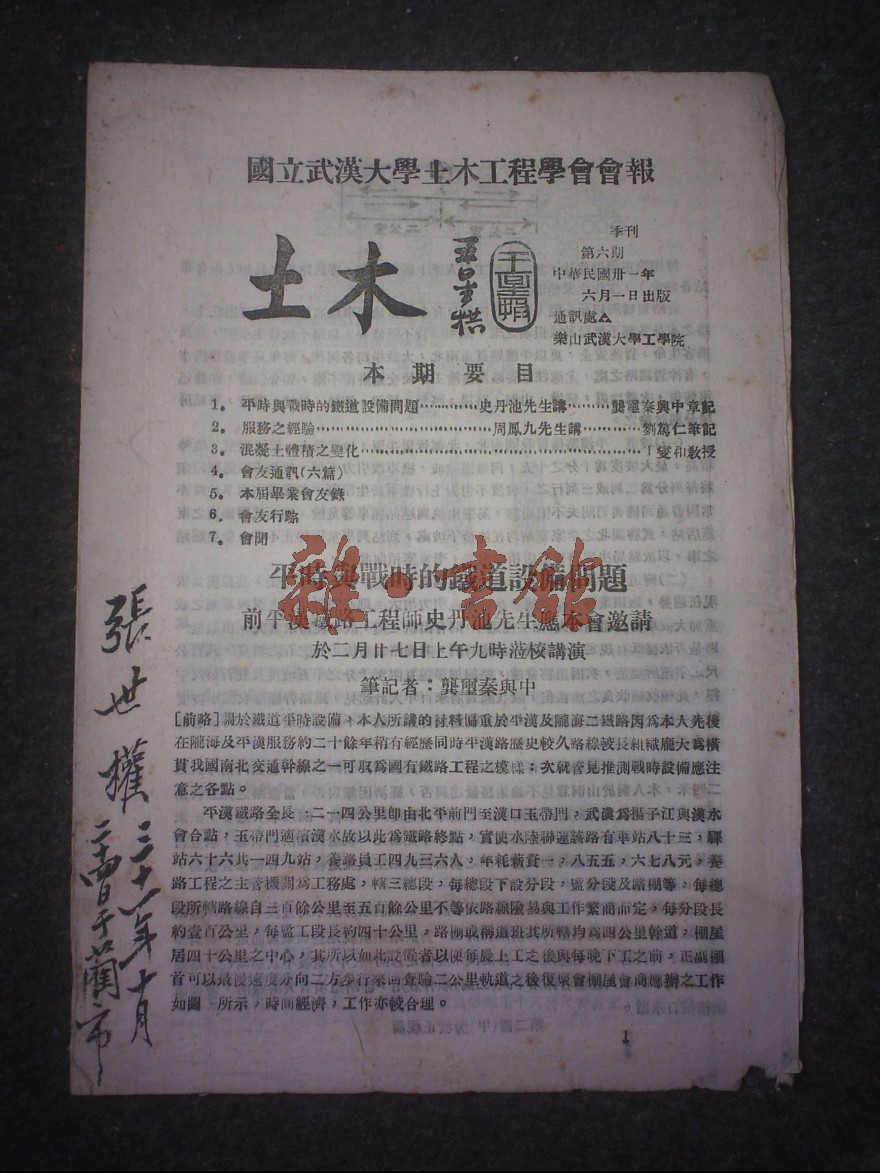 國立武漢大學土木工程學會會報
土木
王星拱
季刊
第六期
中華民國卅一年
六月一日出版
通訊處△
樂山武漢大學工學院
本期要目
1。平時與戰時的鐵道設備問題…………史丹池先生講………龔璽秦與中章記
2。服務之經驗……………………………周鳳九先生講………劉篤仁筆記
3。混凝土體積之變化……………………………………………丁燮和教授
4。會友通訊(六篇)
5。本屆畢業會友錄
6。會友行踪
7。會聞
平時與戰時的鐵道設備問題
前平漢鐵路工程師史丹池先生應本會邀請
於二月廿七日上午九時蒞校講演
筆記者:龔璽秦與中
[前略]關於鐵道平時設備,本人所講的材料偏重於平漢及隴海二鐵路因為本人先後
在隴海及平漢服務約二十餘年稍有經歷同時平漢路歷史較久路線較長組織龐大為橫
貫我國南北交通幹線之一可取為國有鐵路工程之模樣;次就管見推測戰時設備應注
意之各點。
平漢鐵路全長一二一四公里卽由北平前門至漢口玉帶門,武漢為揚子江與漢水
會合點,玉帶門適濱漢水故以此為鐵路終點,實使水陸聯運該路有車站八十三,驛
站六十六共一四九站,養路員工四九三六人,年耗薪資一,八五五,六七八元,養
路工程之主管機關為工務處,轄三總段,每總段下設分段,監分段及路棚等,每總
段所轄路線自三百餘公里至五百餘公里不等依路線險易與工作繁簡而定,每分段長
約壹百公里,每監工段長約四十公里,路棚或稱道班其所轄均為四公里幹道,棚屋
居四十公里之中心,其所以如此設置者以便每晨上工之後與每晚下工之前,正副棚
首可以最慢速度分向二方步行來回查驗二公里軌道之後復聚會棚屋會商應辦之工作
如圖一所示,時間經濟,工作亦較合理。
1
張世權
三十一年十月
雜·書館